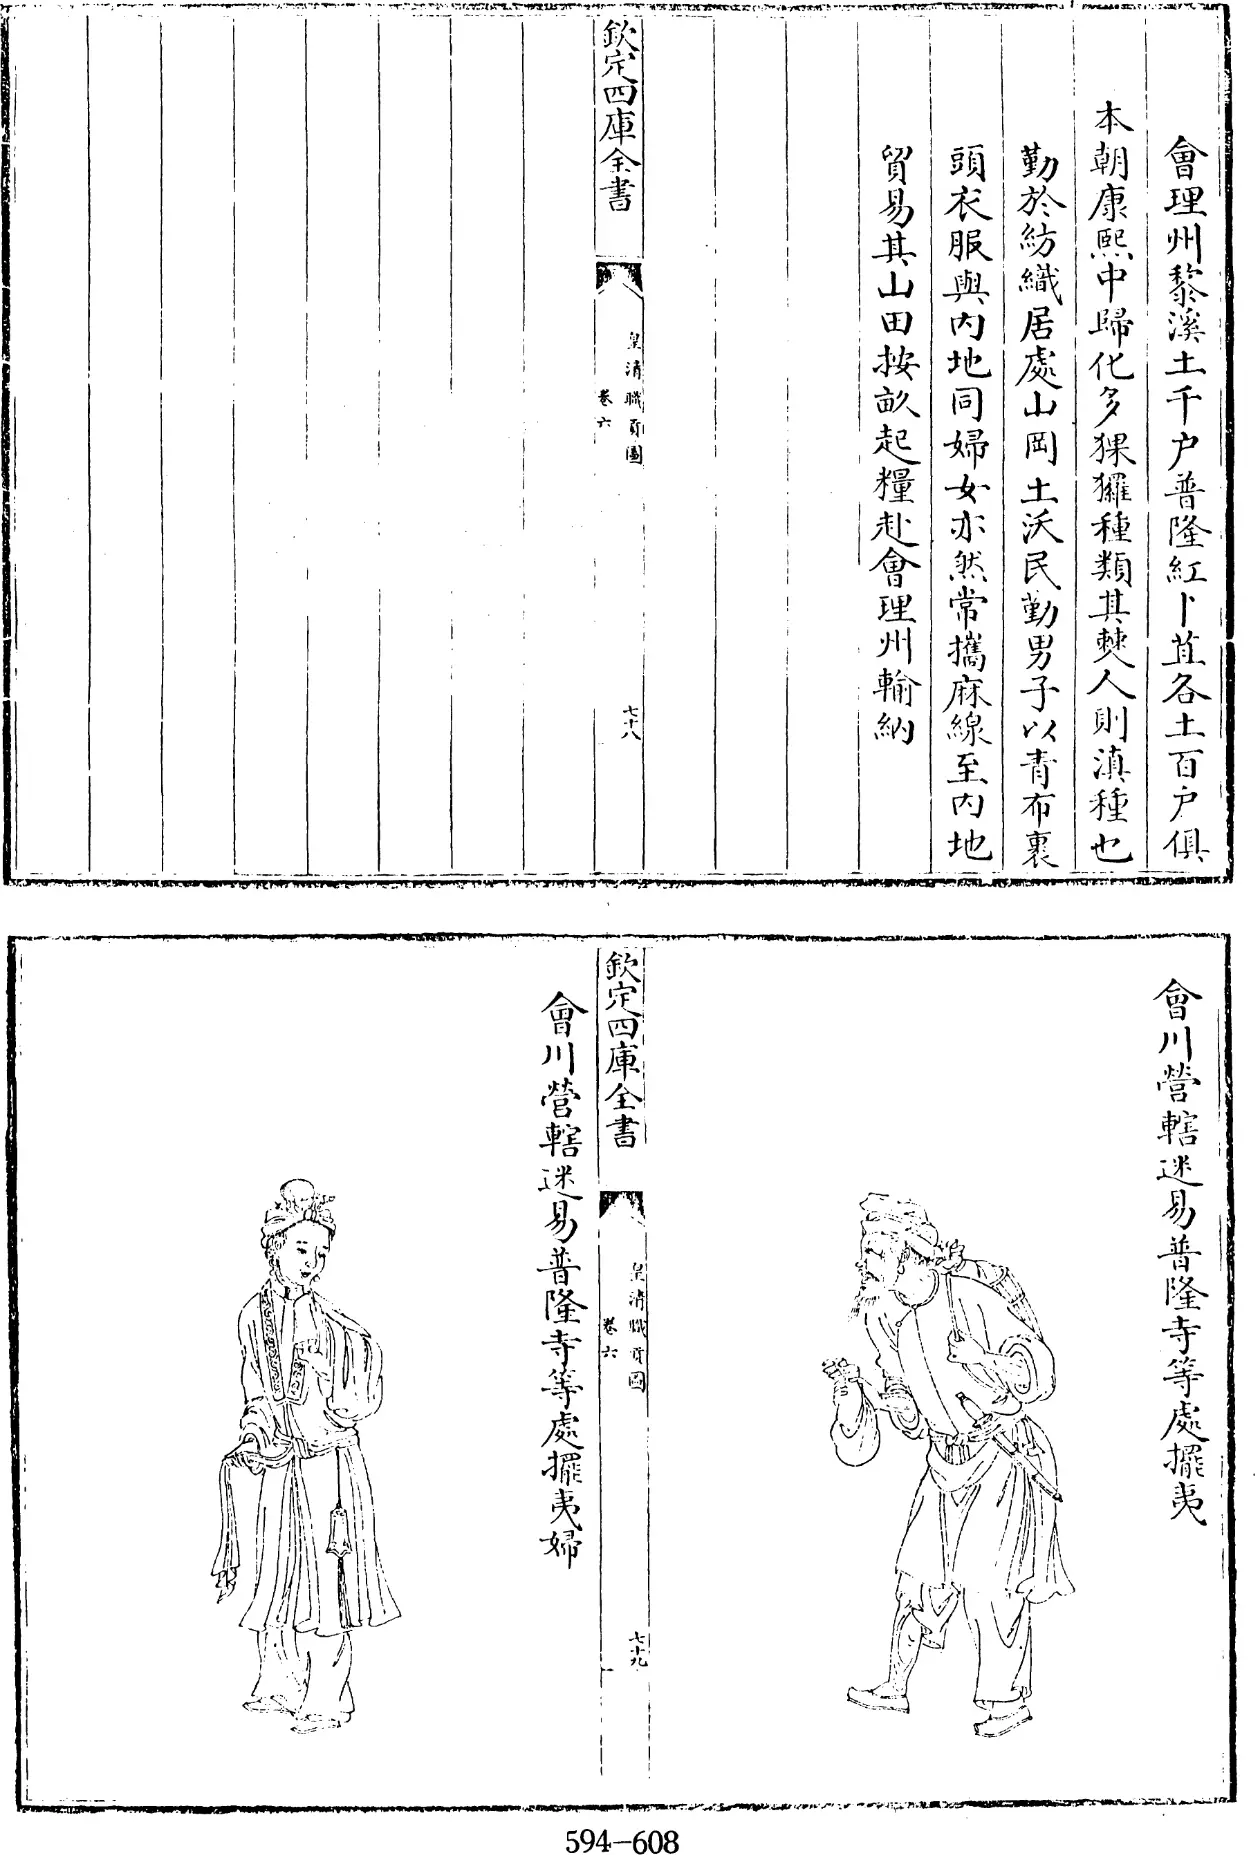 會理州黎溪土千户普隆紅卜苴各土百户俱
本朝康熙中歸化多猓玀種類其僰人則滇種也
勤於紡織居處山岡土沃民勤男子以青布裹
頭衣服與内地同婦女亦然常攜麻線至内地
貿易其山田按畝起糧赴會理州輸納
欽定四庫全書
皇清職貢圖
卷六
七十八
會川營轄迷易普隆寺等處擺夷
欽定四庫全書
皇清職貢圖
卷六
七十九
會川營轄迷易普隆寺等處擺夷婦
594-608